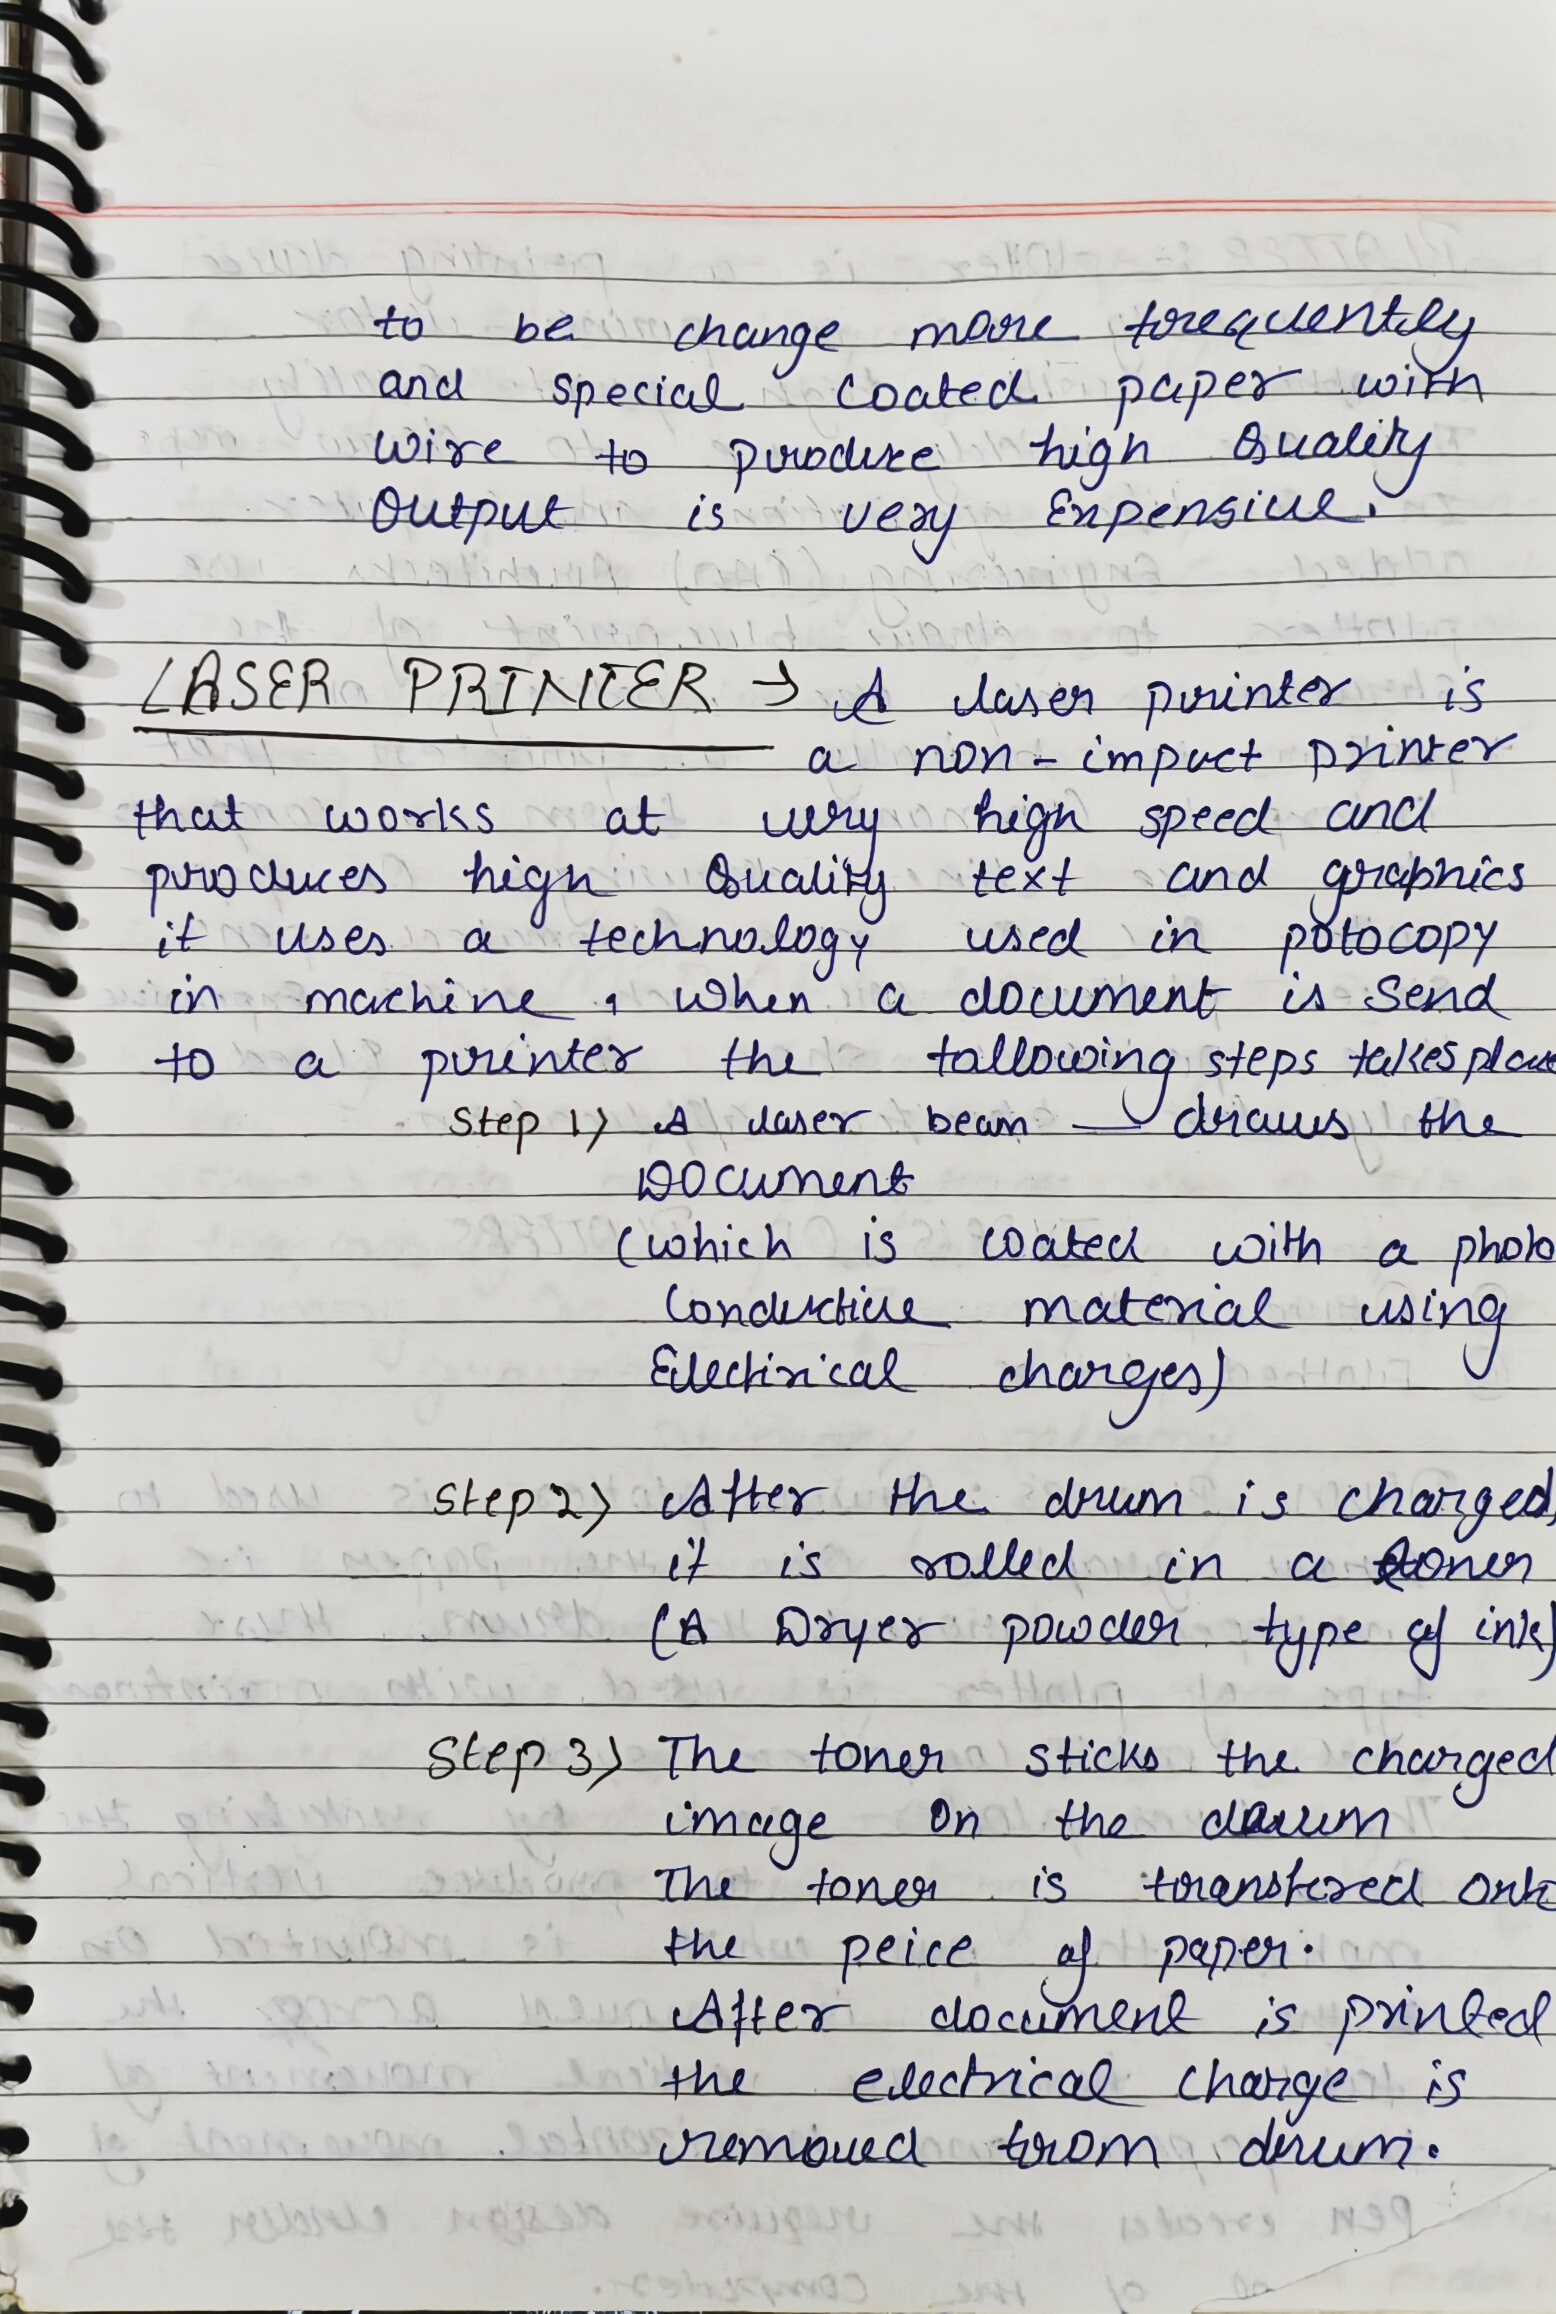 to be change more frequently
and special coated paper with
wire to produce high Quality
Output is very Expensive.
LASER PRINTER → A laser printer is
a non-impact printer
that works at very high speed and
produces high Quality text and graphics
it uses a technology used in potocopy
in machine, when a document is Send
to a printer the following steps takes place
Step 1) A laser beam — draws the
Document
(which is coated with a photo
Conductive material using
Electrical charges)
Step 2) After the drum is charged,
it is rolled in a toner
(A Dryer powder type of ink)
Step 3) The toner sticks the charged
image on the drum
The toner is transfered onto
the peice of paper.
After document is printed
the electrical charge is
removed from drum.